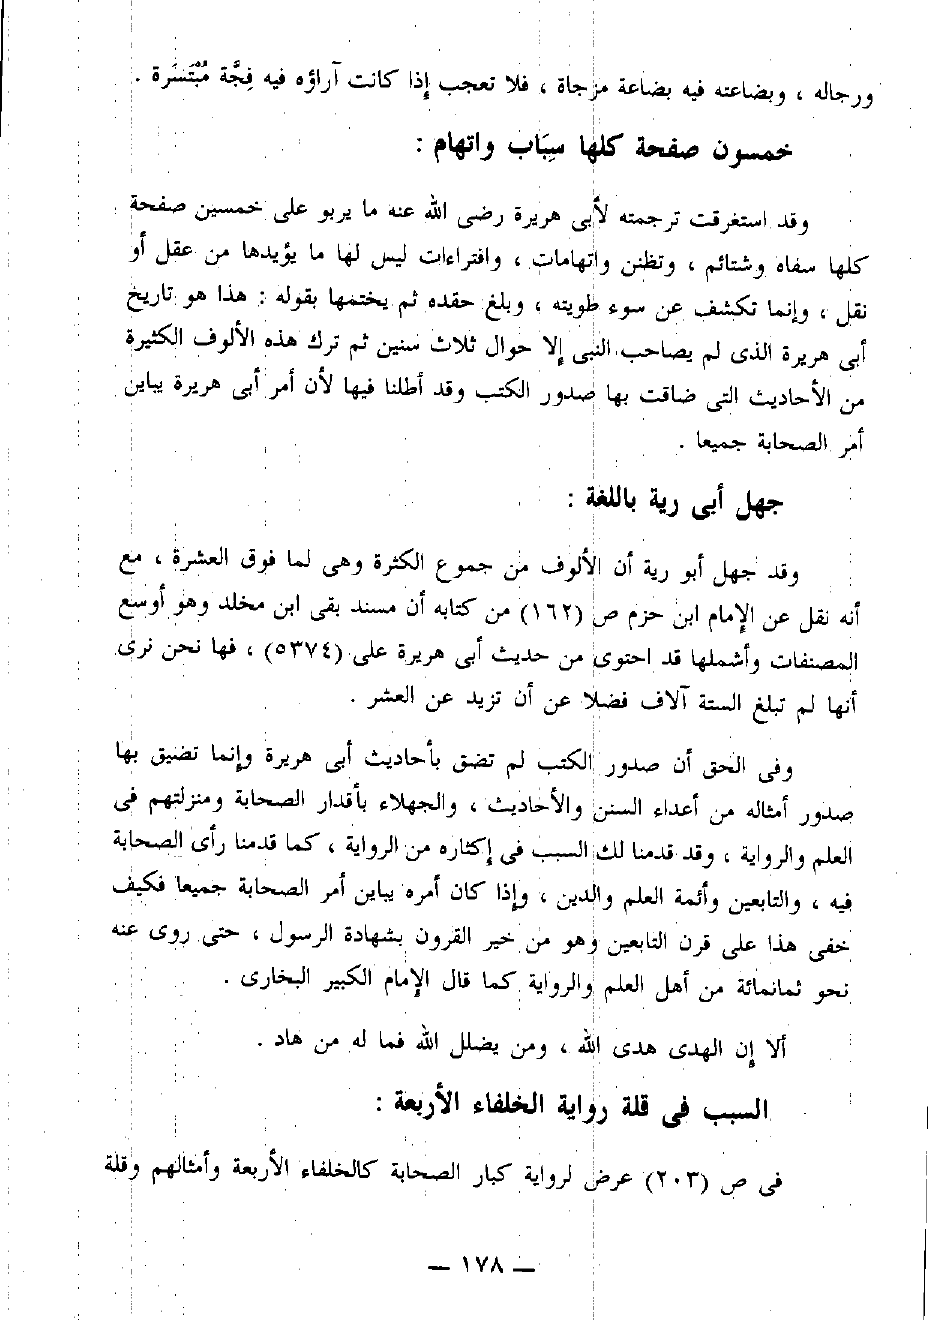 ورجاله ، وبضاعته فيه بضاعة مزجاة ، فلا تعجب إذا كانت آراؤه فيه فِجَّة مُبْتَسَرة .
خمسون صفحة كلها سِبَاب واتهام :
وقد استغرقت ترجمته لأبى هريرة رضى الله عنه ما يربو على خمسين صفحة
كلها سفاه وشتائم ، وتظنن واتهامات ، وافتراءات ليس لها ما يؤيدها من عقل أو
نقل ، وإنما تكشف عن سوء طويته ، وبلغ حقده ثم يختمها بقوله : هذا هو تاريخ
أبى هريرة الذى لم يصاحب النبى إلا حوال ثلاث سنين ثم ترك هذه الألوف الكثيرة
من الأحاديث التى ضاقت بها صدور الكتب وقد أطلنا فيها لأن أمر أبى هريرة يباين
أمر الصحابة جميعا .
جهل أبى رية باللغة :
وقد جهل أبو رية أن الألوف من جموع الكثرة وهى لما فوق العشرة ، مع
أنه نقل عن الإمام ابن حزم ص (١٦٢) من كتابه أن مسند بقى ابن مخلد وهو أوسع
المصنفات وأشملها قد احتوى من حديث أبى هريرة على (٥٣٧٤) ، فها نحن نرى
أنها لم تبلغ الستة آلاف فضلا عن أن تزيد عن العشر .
وفى الحق أن صدور الكتب لم تضق بأحاديث أبى هريرة وإنما تضيق بها
صدور أمثاله من أعداء السنن والأحاديث ، والجهلاء بأقدار الصحابة ومنزلتهم فى
العلم والرواية ، وقد قدمنا لك السبب فى إكثاره من الرواية ، كما قدمنا رأى الصحابة
فيه ، والتابعين وأئمة العلم والدين ، وإذا كان أمره يباين أمر الصحابة جميعا فكيف
خفى هذا على قرن التابعين وهو من خير القرون بشهادة الرسول ، حتى روى عنه
نحو ثمانمائة من أهل العلم والرواية كما قال الإمام الكبير البخارى .
ألا إن الهدى هدى الله ، ومن يضلل الله فما له من هاد .
السبب فى قلة رواية الخلفاء الأربعة :
فى ص (٢٠٣) عرض لرواية كبار الصحابة كالخلفاء الأربعة وأمثالهم وقلة
— ١٧٨ —